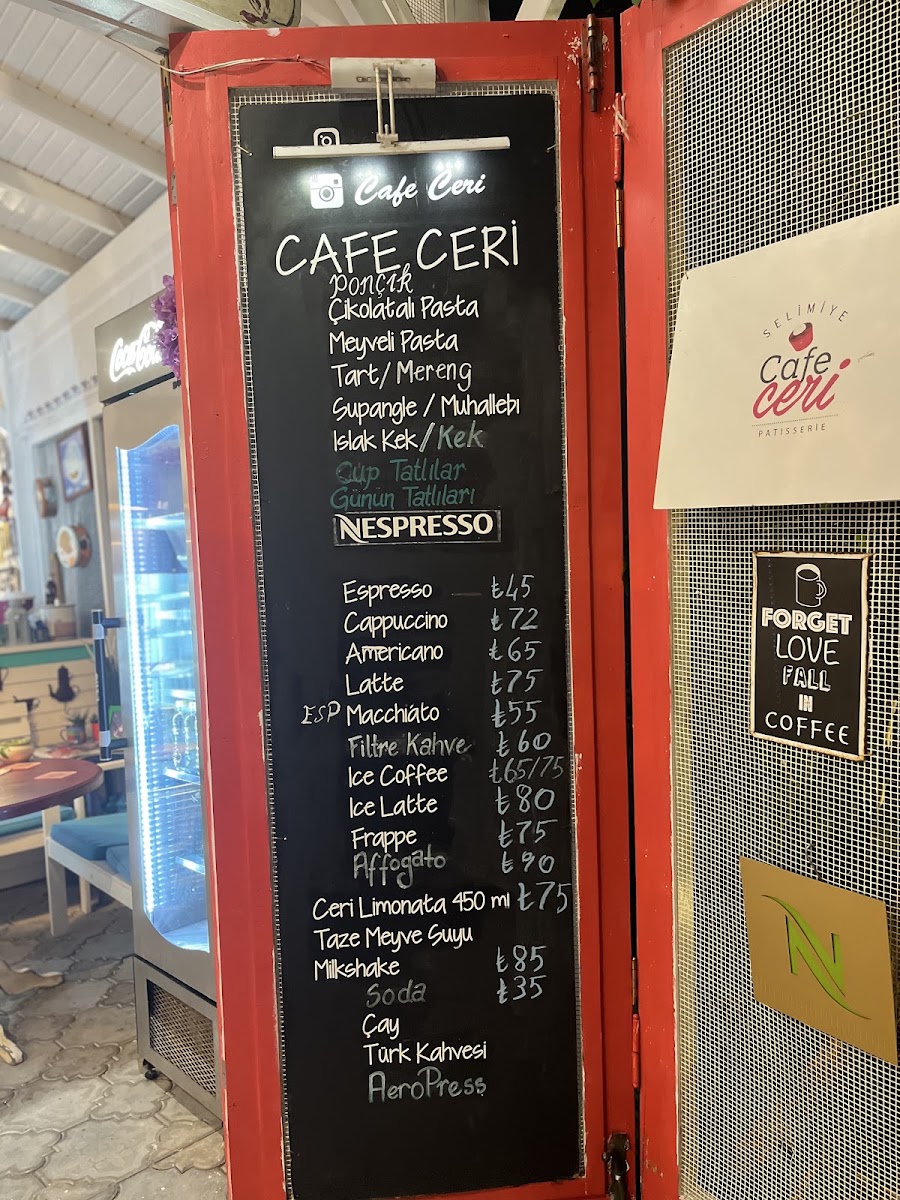 Cafe Ceri
CAFE CERİ
PONÇİK
Çikolatalı Pasta
Meyveli Pasta
Tart/Mereng
Supangle / Muhallebi
Islak Kek/Kek
Cup Tatlılar
Günün Tatlıları
NESPRESSO
Espresso ₺45
Cappuccino ₺72
Americano ₺65
Latte ₺75
ESP Macchiato ₺55
Filtre Kahve ₺60
Ice Coffee ₺65/75
Ice Latte ₺80
Frappe ₺75
Affogato ₺90
Ceri Limonata 450 ml ₺75
Taze Meyve Suyu
Milkshake ₺85
Soda ₺35
Çay
Türk Kahvesi
AeroPress
SELİMİYE
Cafe
ceri
PATISSERIE
FORGET
LOVE
FALL
IN
COFFEE
N